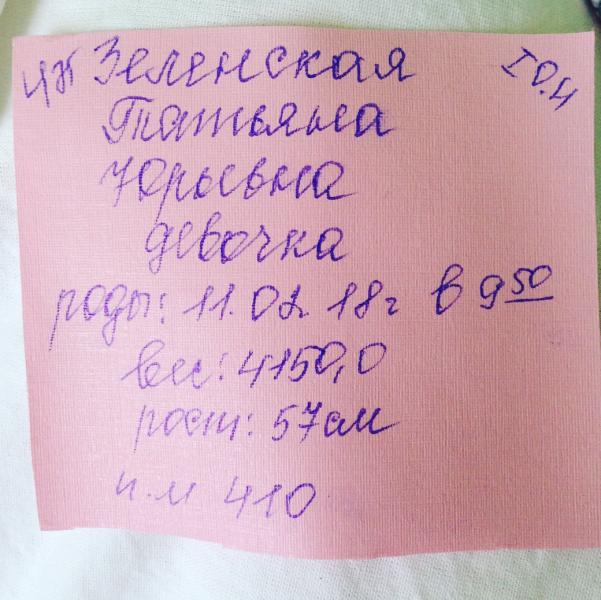 Зеленская
Татьяна
Юрьевна
девочка
роды: 11.02.18г в 9 50
вес: 4150,0
рост: 57см
и.м 410